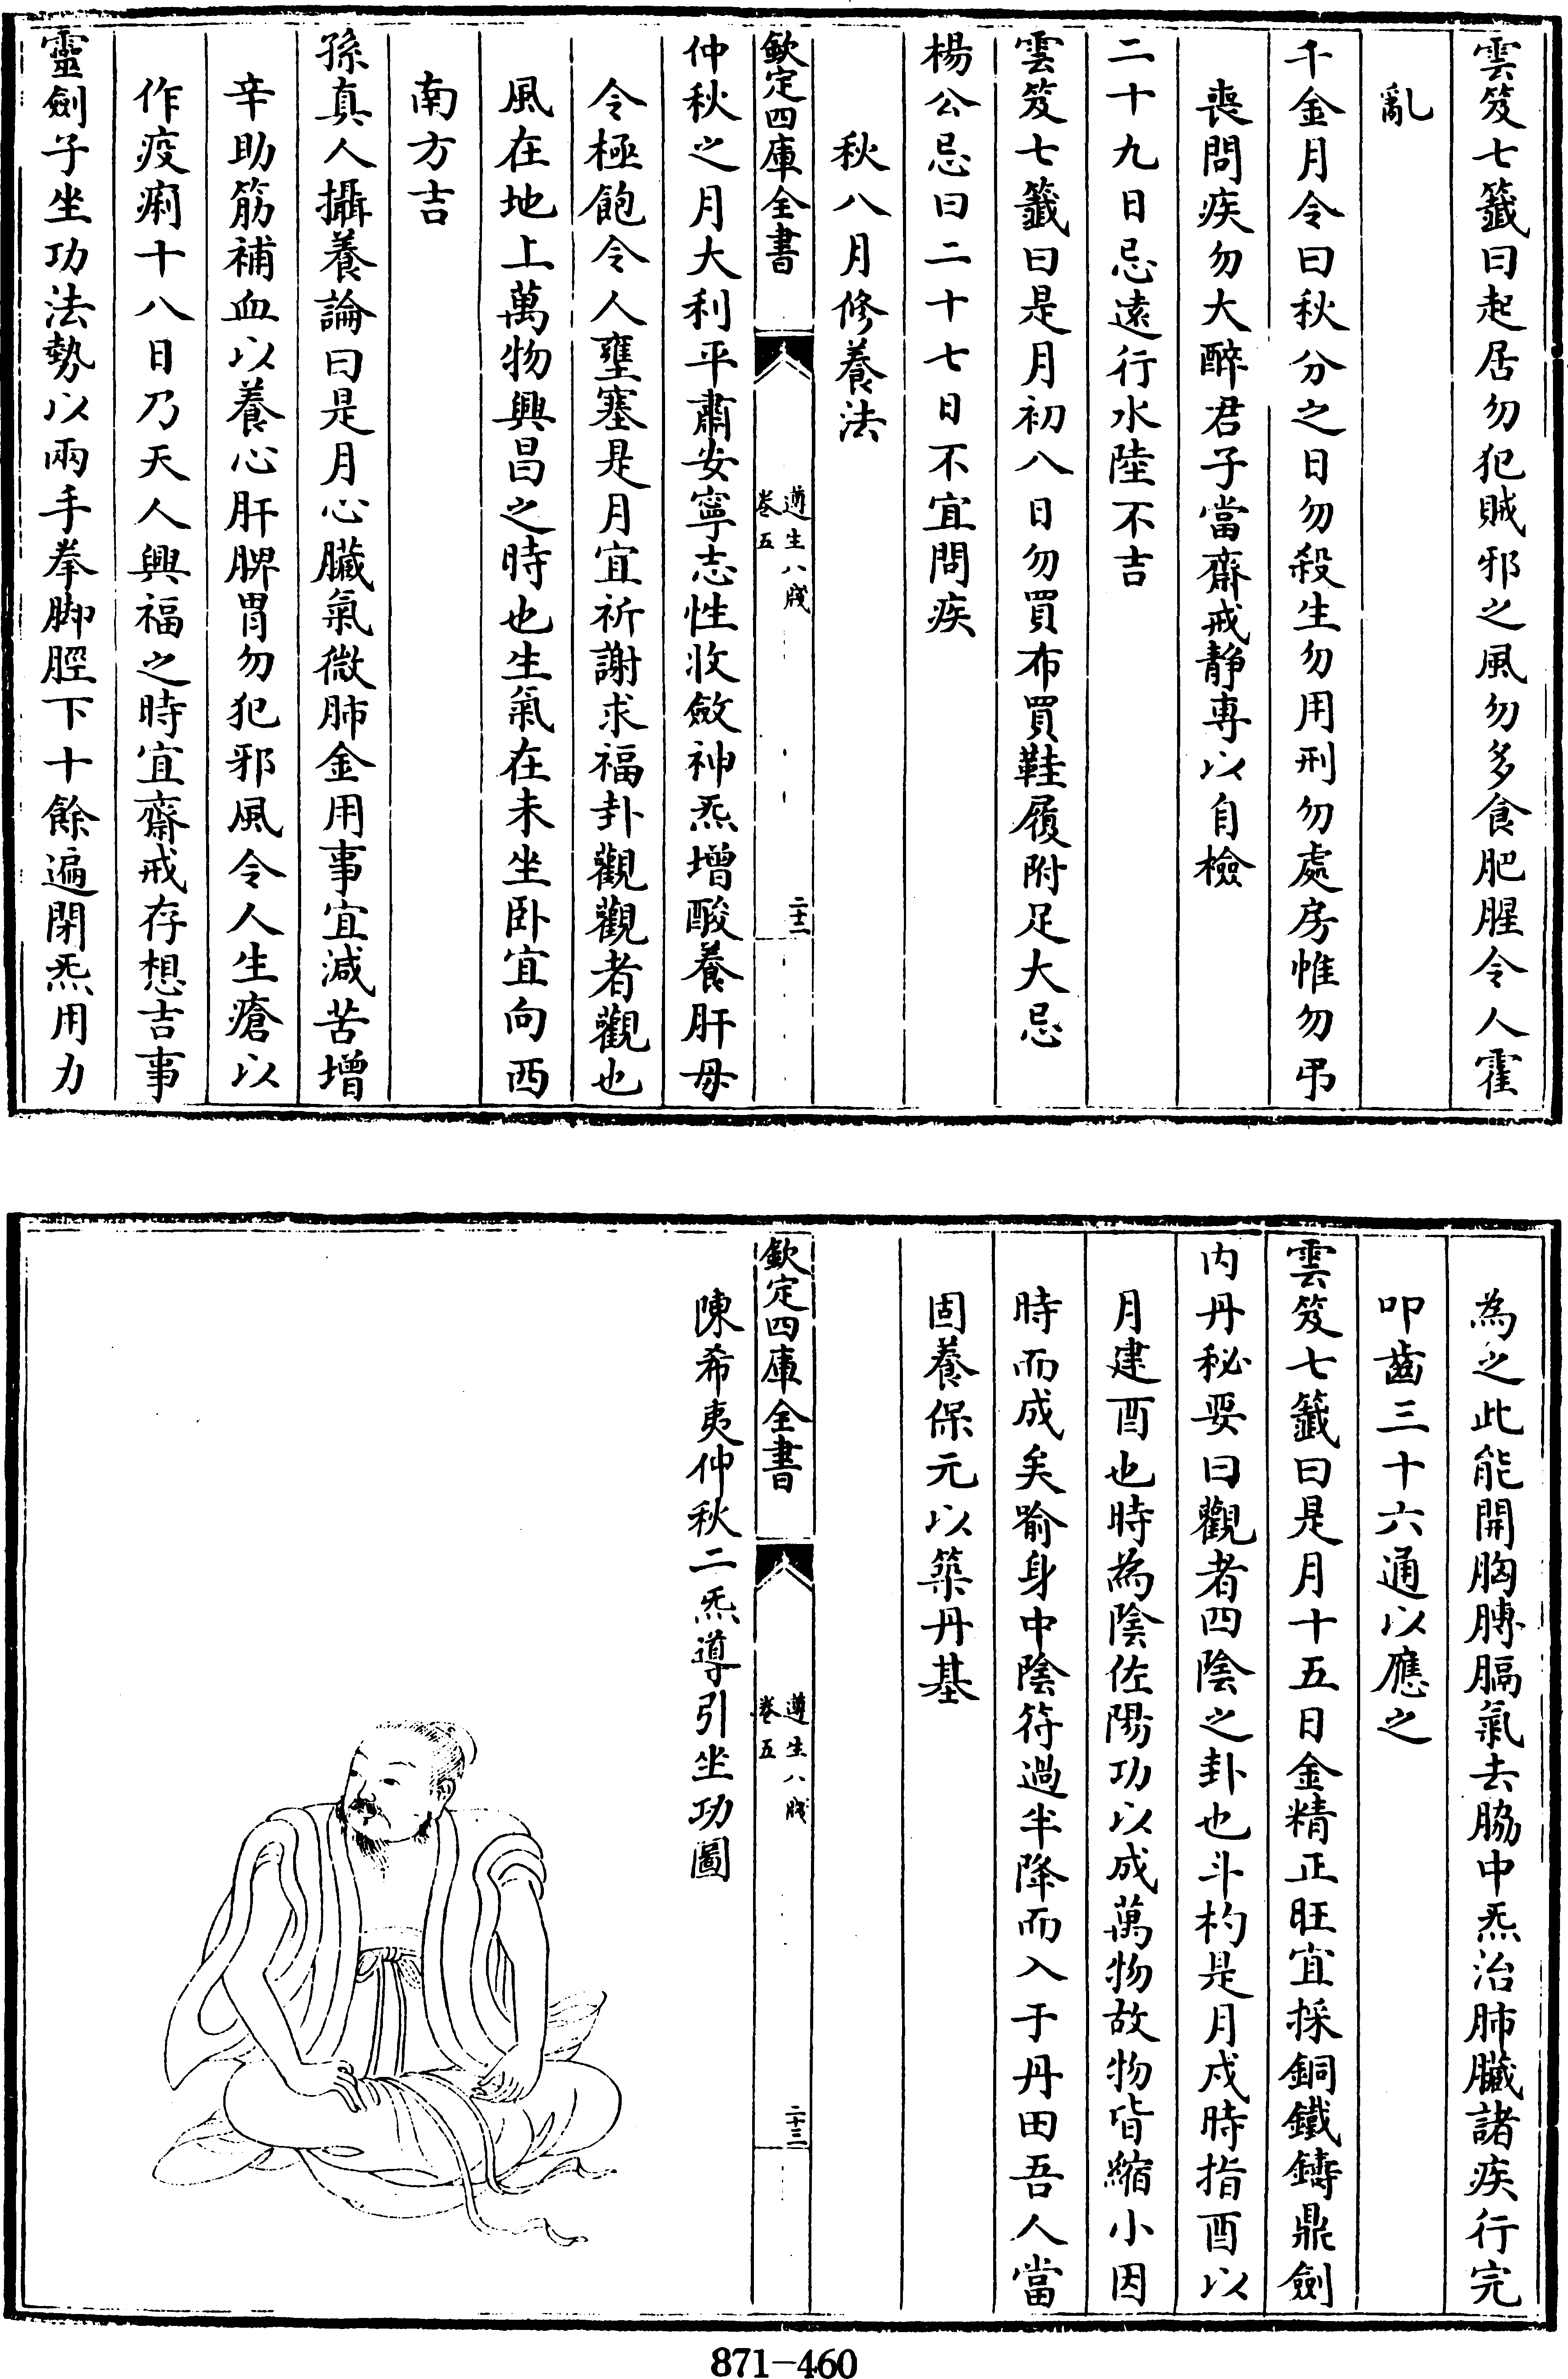 雲笈七籤曰起居勿犯賊邪之風勿多食肥腥令人霍
亂
千金月令曰秋分之日勿殺生勿用刑勿處房帷勿弔
喪問疾勿大醉君子當齋戒靜專以自檢
二十九日忌遠行水陸不吉
雲笈七籤曰是月初八日勿買布買鞋履附足大忌
楊公忌曰二十七日不宜問疾
秋八月修養法
欽定四庫全書
遵生八牋
卷五
二十二
仲秋之月大利平肅安寧志性收斂神炁增酸養肝毋
令極飽令人壅塞是月宜祈謝求福卦觀觀者觀也
風在地上萬物興昌之時也生氣在未坐卧宜向西
南方吉
孫真人攝養論曰是月心臟氣微肺金用事宜減苦增
辛助筋補血以養心肝脾胃勿犯邪風令人生瘡以
作疫痢十八日乃天人興福之時宜齋戒存想吉事
靈劍子坐功法勢以兩手拳脚脛下十餘遍閉炁用力
為之此能開胸膊膈氣去脇中炁治肺臟諸疾行完
叩齒三十六通以應之
雲笈七籤曰是月十五日金精正旺宜採銅鐵鑄鼎劍
内丹秘要曰觀者四陰之卦也斗杓是月戍時指酉以
月建酉也時為陰佐陽功以成萬物故物皆縮小因
時而成矣喻身中陰符過半降而入于丹田吾人當
固養保元以築丹基
欽定四庫全書
遵生八牋
卷五
二十三
陳希夷仲秋二炁導引坐功圖
871-460